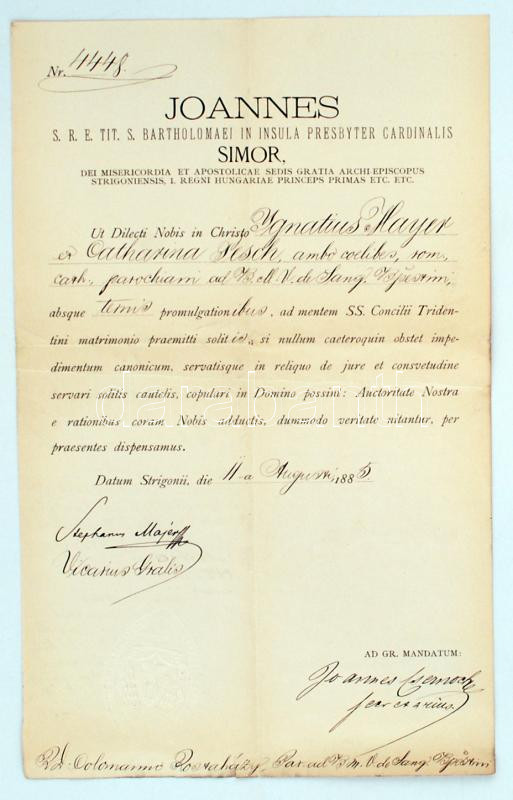 Nr. 4448.
JOANNES
S. R. E. TIT. S. BARTHOLOMAEI IN INSULA PRESBYTER CARDINALIS
SIMOR,
DEI MISERICORDIA ET APOSTOLICAE SEDIS GRATIA ARCHI-EPISCOPUS
STRIGONIENSIS, I. REGNI HUNGARIAE PRINCEPS PRIMAS ETC. ETC.
Ut Dilecti Nobis in Christo Ignatius Mayer
et Catharina Pesch, ambo coelibes, rom.
cath. parochiani ad B. M. V. de Sang. Bpestini,
absque ternis promulgationibus, ad mentem SS. Concilii Triden-
tini matrimonio praemitti solitis, si nullum caeteroquin obstet impe-
dimentum canonicum, servatisque in reliquo de jure et consvetudine
servari solitis cautelis, copulari in Domino possint: Auctoritate Nostra
e rationibus coram Nobis adductis, dummodo veritate nitantur, per
praesentes dispensamus.
Datum Strigonii, die 11-a Augusti 1885.
Stephanus Majer
Vicarius Gralis
AD GR. MANDATUM:
Joannes Csernoch
secretarius
Colomanno Rostaházy, Par. ad B. M. V. de Sang. Bpestini